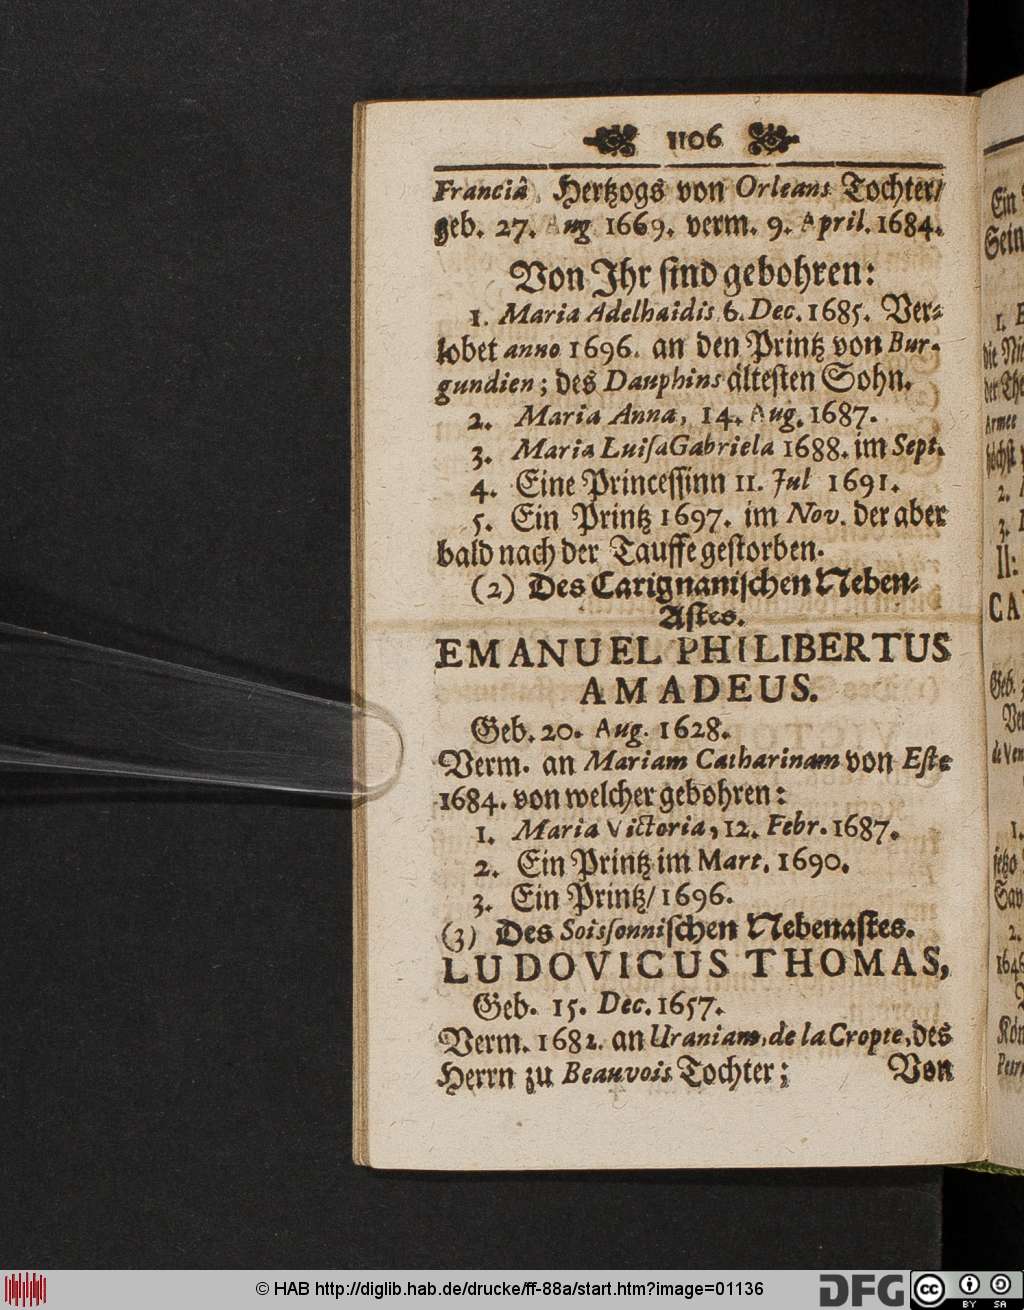 1106
Franciâ, Hertzogs von Orleans Tochter/
geb. 27. Aug 1669. verm. 9. April. 1684.
Von Ihr sind gebohren:
1. Maria Adelhaidis 6. Dec. 1685. Ver-
lobet anno 1696. an den Printz von Bur-
gundien; des Dauphins ältesten Sohn.
2. Maria Anna, 14. Aug. 1687.
3. Maria Luisa Gabriela 1688. im Sept.
4. Eine Princessinn 11. Jul 1691.
5. Ein Printz 1697. im Nov. der aber
bald nach der Tauffe gestorben.
(2) Des Carignanischen Neben-
Astes.
EMANUEL PHILIBERTUS
AMADEUS.
Geb. 20. Aug. 1628.
Verm. an Mariam Catharinam von Este
1684. von welcher gebohren:
1. Maria Victoria, 12. Febr. 1687.
2. Ein Printz im Mart. 1690.
3. Ein Printz/ 1696.
(3) Des Soissonnischen Nebenastes.
LUDOVICUS THOMAS,
Geb. 15. Dec. 1657.
Verm. 1682. an Uraniam, de la Cropte, des
Herrn zu Beauvois Tochter;
Von
Ein
1.
die
2.
3.
II:
CA
Geb.
1.
2.
© HAB http://diglib.hab.de/drucke/ff-88a/start.htm?image=01136
DFG
cc
BY SA